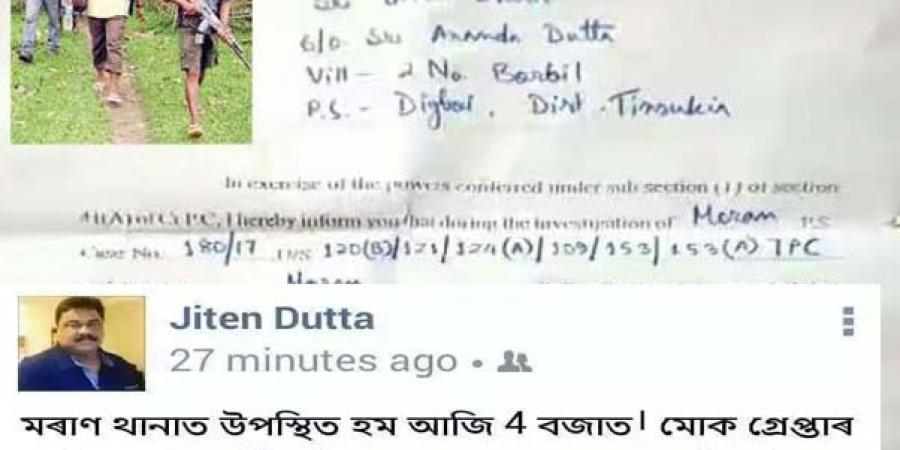 S/o Sri Ananda Dutta
Vill - 2 No. Borbil
P.S. - Digboi, Dist. Tinsukia
In exercise of the powers conferred under sub section (1) of section
41(A) of Cr.PC, I hereby inform you that during the investigation of Moran P.S
Case No. 180/17 U/S 120(B)/121/124(A)/109/153/153(A) IPC
Moran
Jiten Dutta
27 minutes ago
মৰাণ থানাত উপস্থিত হম আজি 4 বজাত। মোক গ্ৰেপ্তাৰ